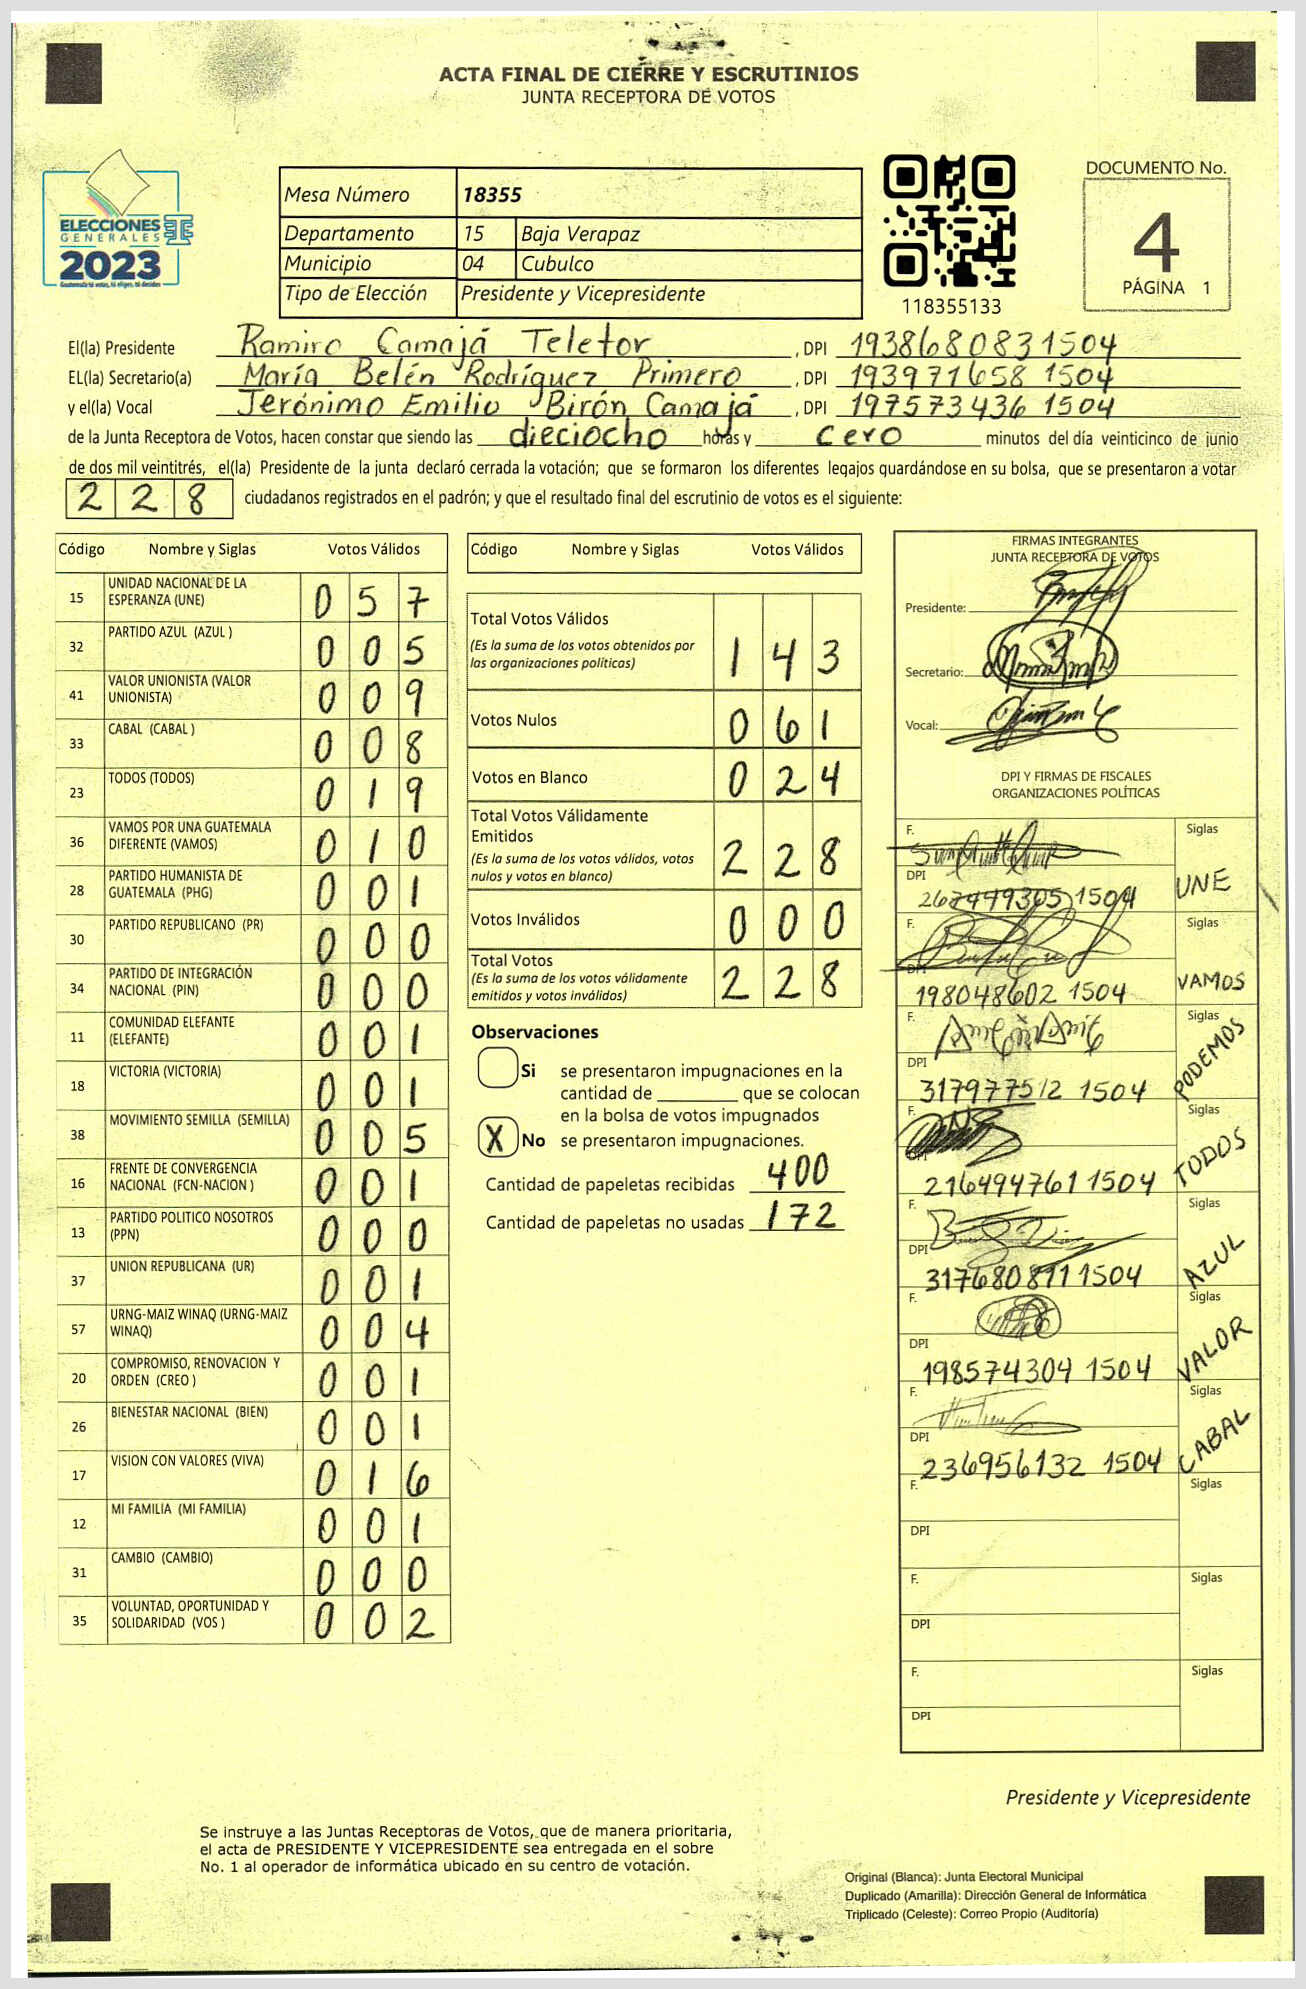 ACTA FINAL DE CIERRE Y ESCRUTINIOS
JUNTA RECEPTORA DE VOTOS
ELECCIONES
GENERALES
2023
Guatemala tú votas, tú eliges, tú decides
Mesa Número 18355
Departamento 15 Baja Verapaz
Municipio 04 Cubulco
Tipo de Elección Presidente y Vicepresidente
118355133
DOCUMENTO No.
4
PÁGINA 1
El(la) Presidente Ramiro Camajá Teletor, DPI 193868083 1504
EL(la) Secretario(a) María Belén Rodríguez Primero, DPI 193971658 1504
y el(la) Vocal Jerónimo Emilio Birón Camajá, DPI 197573436 1504
de la Junta Receptora de Votos, hacen constar que siendo las dieciocho horas y cero minutos del día veinticinco de junio
de dos mil veintitrés, el(la) Presidente de la junta declaró cerrada la votación; que se formaron los diferentes legajos guardándose en su bolsa, que se presentaron a votar
228 ciudadanos registrados en el padrón; y que el resultado final del escrutinio de votos es el siguiente:
Código Nombre y Siglas Votos Válidos
15 UNIDAD NACIONAL DE LA ESPERANZA (UNE) 057
32 PARTIDO AZUL (AZUL ) 005
41 VALOR UNIONISTA (VALOR UNIONISTA) 009
33 CABAL (CABAL ) 008
23 TODOS (TODOS) 019
36 VAMOS POR UNA GUATEMALA DIFERENTE (VAMOS) 010
28 PARTIDO HUMANISTA DE GUATEMALA (PHG) 001
30 PARTIDO REPUBLICANO (PR) 000
34 PARTIDO DE INTEGRACIÓN NACIONAL (PIN) 000
11 COMUNIDAD ELEFANTE (ELEFANTE) 001
18 VICTORIA (VICTORIA) 001
38 MOVIMIENTO SEMILLA (SEMILLA) 005
16 FRENTE DE CONVERGENCIA NACIONAL (FCN-NACION ) 001
13 PARTIDO POLITICO NOSOTROS (PPN) 000
37 UNION REPUBLICANA (UR) 001
57 URNG-MAIZ WINAQ (URNG-MAIZ WINAQ) 004
20 COMPROMISO, RENOVACION Y ORDEN (CREO ) 001
26 BIENESTAR NACIONAL (BIEN) 001
17 VISION CON VALORES (VIVA) 016
12 MI FAMILIA (MI FAMILIA) 001
31 CAMBIO (CAMBIO) 000
35 VOLUNTAD, OPORTUNIDAD Y SOLIDARIDAD (VOS ) 002
Código Nombre y Siglas Votos Válidos
Total Votos Válidos 143
(Es la suma de los votos obtenidos por
las organizaciones políticas)
Votos Nulos 061
Votos en Blanco 024
Total Votos Válidamente
Emitidos 228
(Es la suma de los votos válidos, votos
nulos y votos en blanco)
Votos Inválidos 000
Total Votos 228
(Es la suma de los votos válidamente
emitidos y votos inválidos)
Observaciones
Si se presentaron impugnaciones en la
cantidad de ________ que se colocan
en la bolsa de votos impugnados
X No se presentaron impugnaciones.
Cantidad de papeletas recibidas 400
Cantidad de papeletas no usadas 172
FIRMAS INTEGRANTES
JUNTA RECEPTORA DE VOTOS
Presidente:
Secretario:
Vocal:
DPI Y FIRMAS DE FISCALES
ORGANIZACIONES POLÍTICAS
F. Siglas
DPI 267449305 1504 UNE
F. Siglas
DPI 198048602 1504 VAMOS
F. Siglas
DPI 317977512 1504 PODEMOS
F. Siglas
DPI 216494761 1504 TODOS
F. Siglas
DPI 317680811 1504 AZUL
F. Siglas
DPI 198574304 1504 VALOR
F. Siglas
DPI 236956132 1504 CABAL
F. Siglas
DPI
F. Siglas
DPI
F. Siglas
DPI
Presidente y Vicepresidente
Se instruye a las Juntas Receptoras de Votos, que de manera prioritaria,
el acta de PRESIDENTE Y VICEPRESIDENTE sea entregada en el sobre
No. 1 al operador de informática ubicado en su centro de votación.
Original (Blanca): Junta Electoral Municipal
Duplicado (Amarilla): Dirección General de Informática
Triplicado (Celeste): Correo Propio (Auditoría)